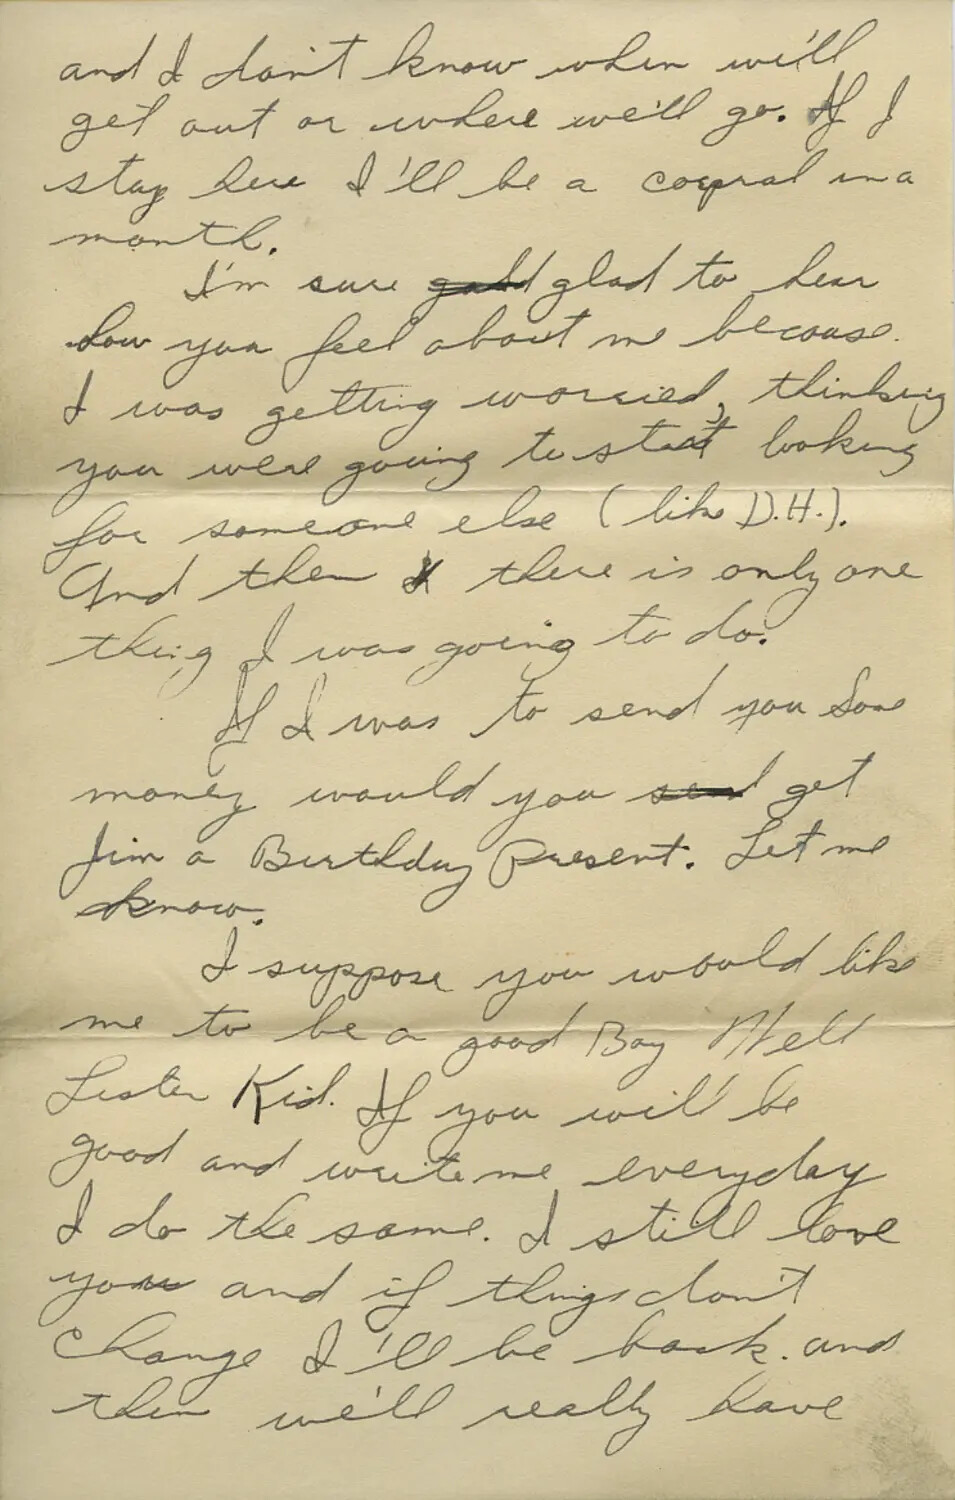 and I don't know when we'll
get out or where we'll go. If I
stay here I'll be a copral in a
month.
I'm sure glad to hear
how you feel about me because
I was getting worried, thinking
you were going to start looking
for someone else (like D.H.).
And then there is only one
thing I was going to do.
If I was to send you some
money would you send get
Jim a Birthday Present. Let me
know.
I suppose you would like
me to be a good Boy Well
Lister Kid. If you will be
good and write me everyday
I do the same. I still love
you and if things don't
change I'll be back. and
then we'll really have